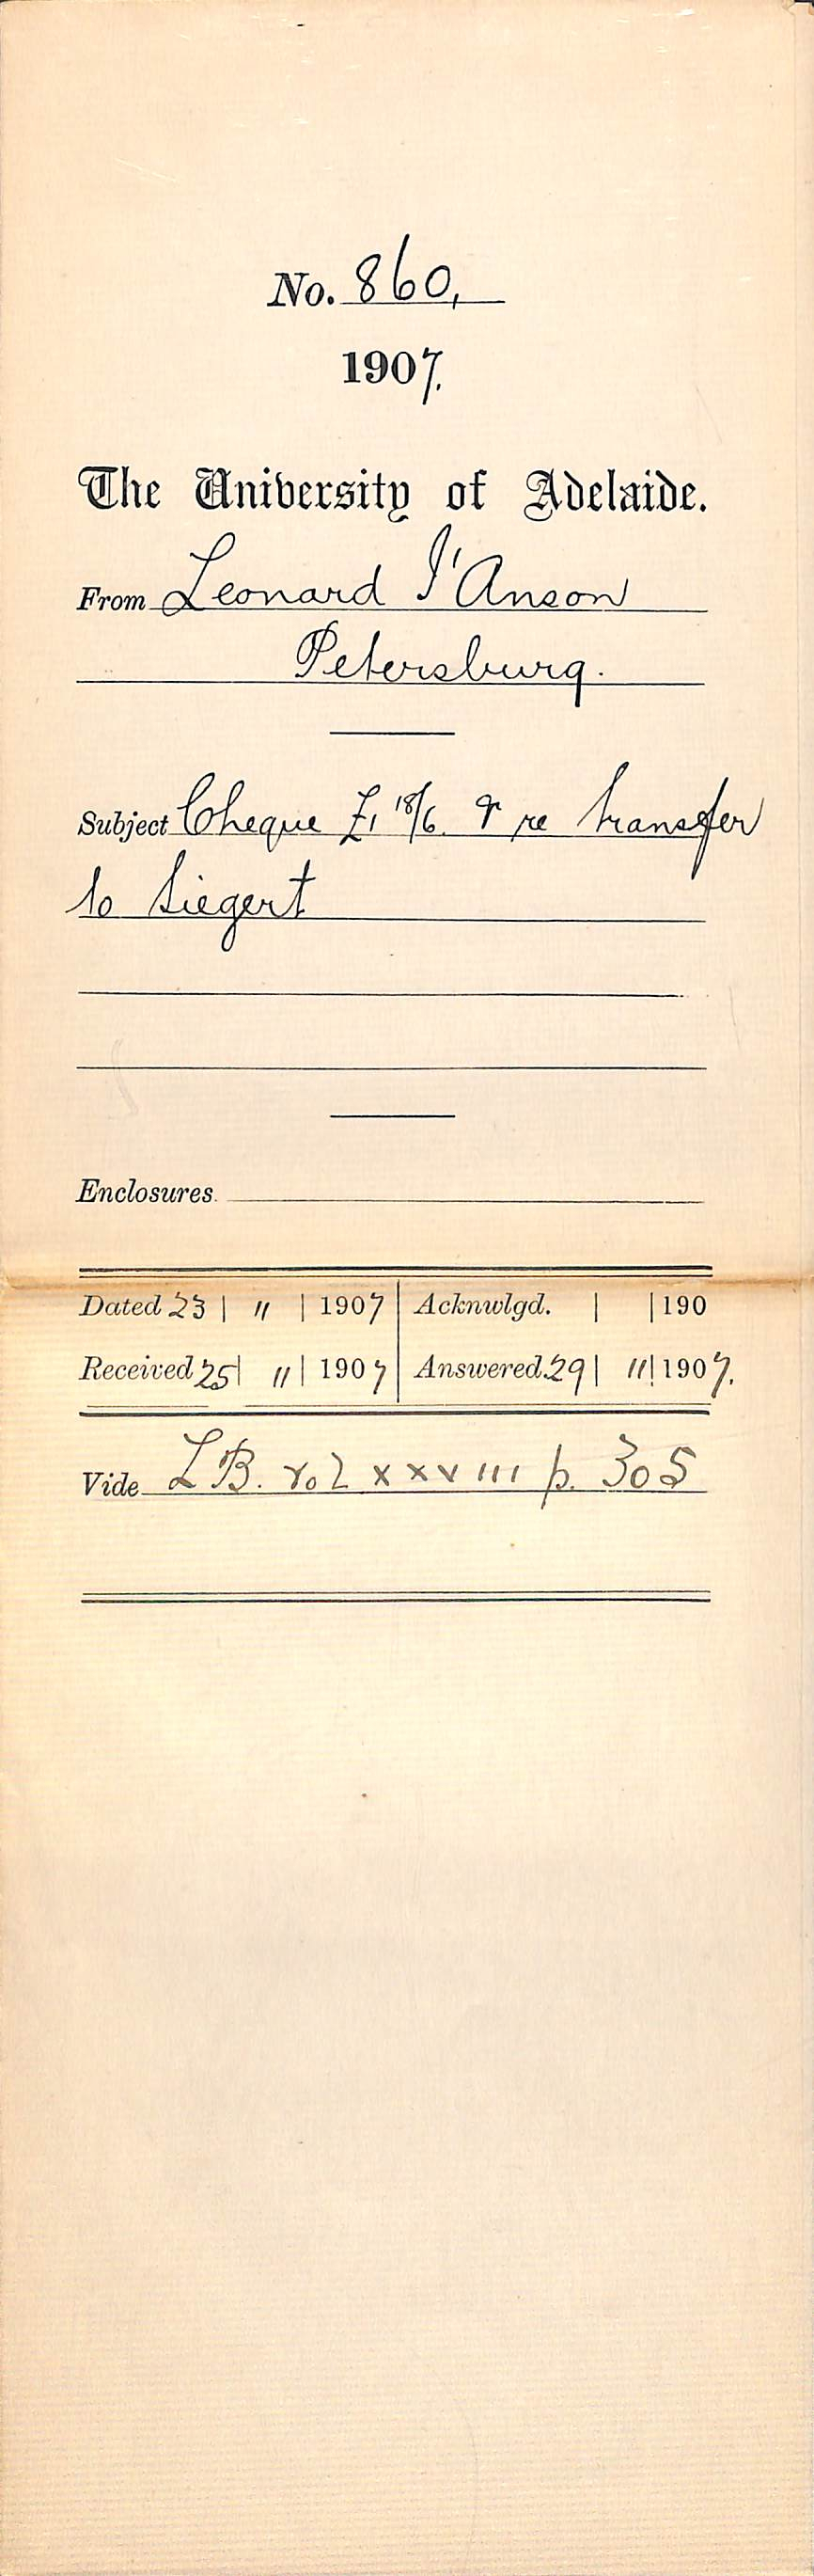 No. 860,
1907.
The University of Adelaide.
From Leonard I'Anson
Petersburg.
Subject Cheque £1 18/6. & re transfer
to Siegert
Enclosures
Dated 23 | 11 | 1907 Acknwlgd. | | 190
Received 25 | 11 | 1907 Answered. 29 | 11 | 1907.
Vide L B. Vol xxviii p. 305